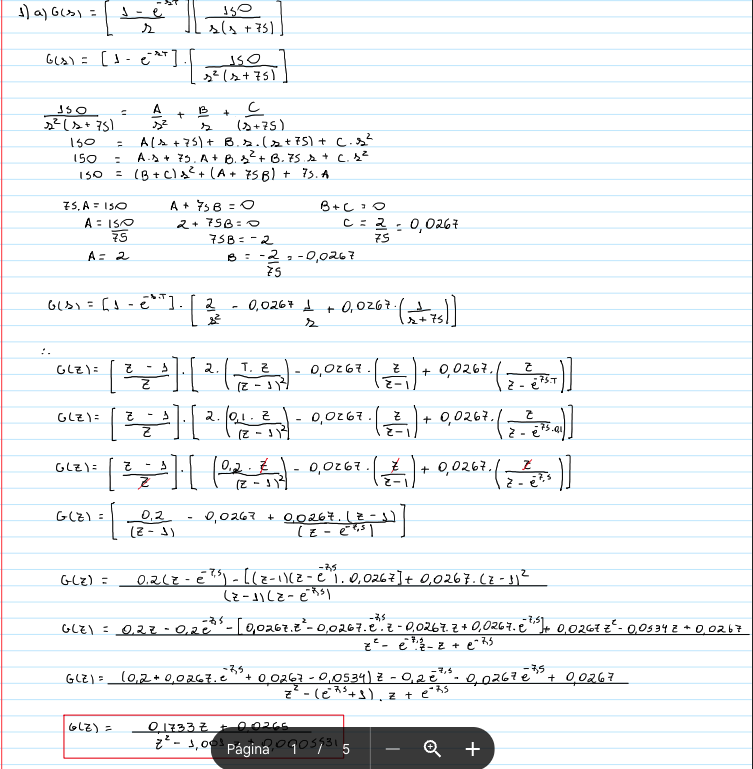 1) a) G(s) = [ (1 - e^-sT) / s ] [ 150 / (s(s + 75)) ]
G(s) = [1 - e^-sT] . [ 150 / (s²(s + 75)) ]
150 / (s²(s + 75)) = A/s² + B/s + C/(s+75)
150 = A(s + 75) + B.s.(s + 75) + C.s²
150 = A.s + 75.A + B.s² + B.75.s + C.s²
150 = (B + C)s² + (A + 75B) + 75.A
75.A = 150 A + 75B = 0 B + C = 0
A = 150/75 2 + 75B = 0 C = 2/75 = 0,0267
75B = -2
A = 2 B = -2/75 = -0,0267
G(s) = [1 - e^-s.T] . [ 2/s² - 0,0267 1/s + 0,0267.(1/(s+75)) ]
∴
G(z) = [ (z - 1)/z ] . [ 2.(T.z/(z - 1)²) - 0,0267.(z/(z-1)) + 0,0267.(z/(z - e^-75.T)) ]
G(z) = [ (z - 1)/z ] . [ 2.(0,1.z/(z - 1)²) - 0,0267.(z/(z-1)) + 0,0267.(z/(z - e^-75.0,1)) ]
G(z) = [ (z - 1)/z ] . [ (0,2.z/(z - 1)²) - 0,0267.(z/(z-1)) + 0,0267.(z/(z - e^-7,5)) ]
G(z) = [ 0,2/(z - 1) - 0,0267 + 0,0267.(z - 1)/(z - e^-7,5) ]
G(z) = 0,2(z - e^-7,5) - [(z-1)(z - e^-7,5).0,0267] + 0,0267.(z - 1)² / (z - 1)(z - e^-7,5)
G(z) = 0,2z - 0,2e^-7,5 - [0,0267.z² - 0,0267.e^-7,5.z - 0,0267.z + 0,0267.e^-7,5] + 0,0267z² - 0,0534z + 0,0267 / z² - e^-7,5.z - z + e^-7,5
G(z) = (0,2 + 0,0267.e^-7,5 + 0,0267 - 0,0534)z - 0,2e^-7,5 - 0,0267e^-7,5 + 0,0267 / z² - (e^-7,5 + 1).z + e^-7,5
G(z) = 0,1733z + 0,0265 / z² - 1,001
Página 1 / 5